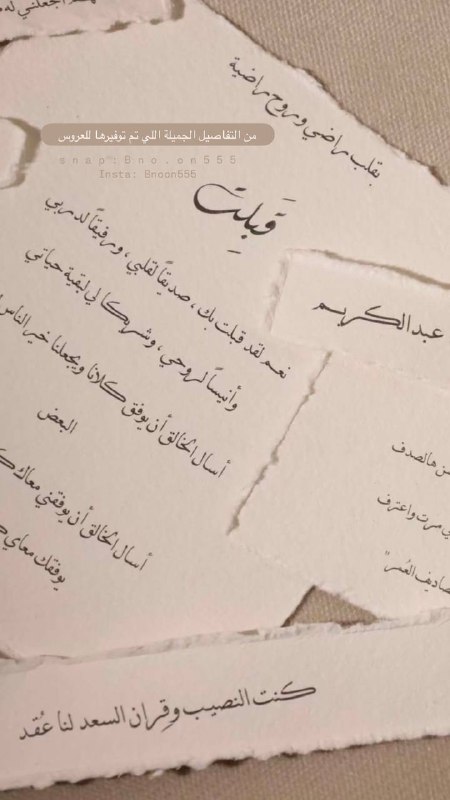 اجعلني
بقلب راضي وروح راضية
من التفاصيل الجميلة اللي تم توفيرها للعروس
snap:Bno.on555
Insta: Bnoon555
قَبِلت
نعم لقد قبلت بك ، صديقاً لقلبي ، ورفيقاً لدربي
وأنيساً لروحي ، وشريكا لي لبقية حياتي
أسال الخالق أن يوفق كلانا ويجعلنا خير الناس
البعض
أسال الخالق أن يوفقني معاك
يوفقك معاي
عبدالكريم
من هالصدف
مرت واعترف
العُمر"
كنت النصيب وقِران السعد لنا عُقد